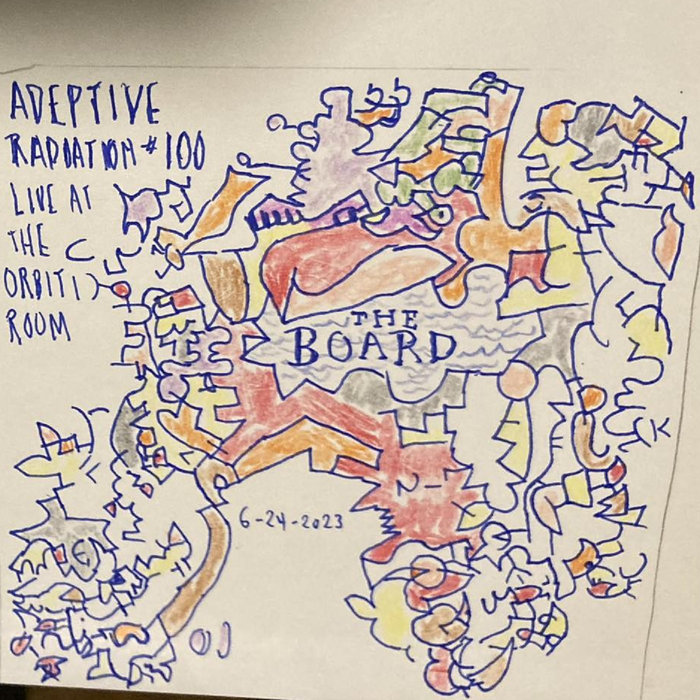 ADEPTIVE
RADIATION #100
LIVE AT
THE
ORBIT
ROOM
THE
BOARD
6-24-2023